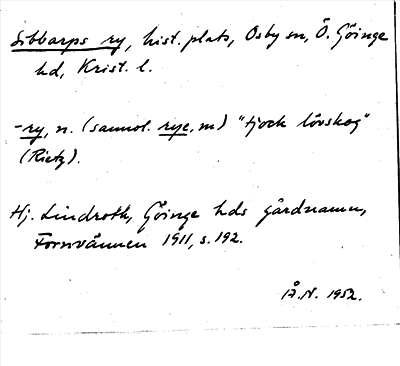 Sibbarps ry, hist. plats, Osby sn, Ö. Göinge
hd, Krist. l.
-ry, n. (sannol. rye, m) "tjock lövskog"
(Rietz).
Hj. Lindroth, Göinge hds gårdnamn,
Fornvännen 1911, s. 192.
Å.N. 1952.